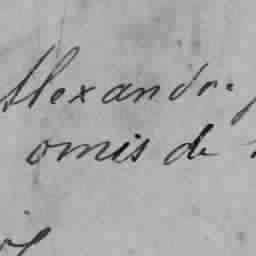 Alexandr.
omis de